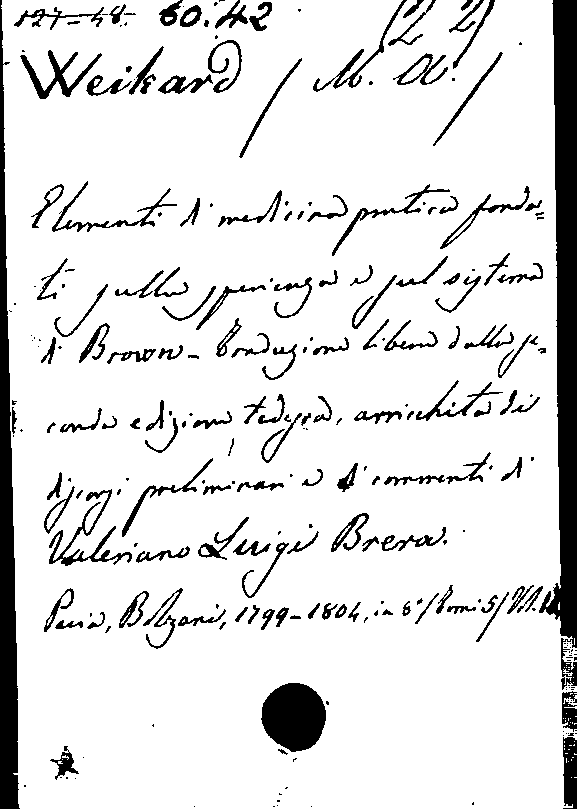 127-48. 60.42 (22)
Weikard / M. A. /
Elementi di medicina pratica fonda=
ti sulla sperienza e sul sistema
di Brown - Traduzione libera dalla se=
conda edizione tedesca, arricchita di
discorsi preliminari e di commenti di
Valeriano Luigi Brera.
Pavia, Bolzani, 1799-1804, in 8°/Tomi 5/